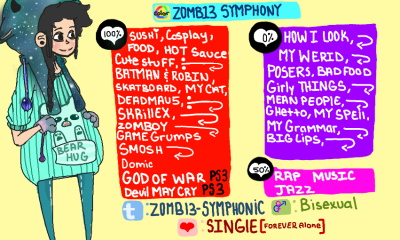 ZOMB13 SYMPHONY
100%
SUSHI, Cosplay,
FOOD, HOT Sauce
Cute Stuff,
BATMAN & ROBIN,
SKATBOARD, MY CAT,
DEADMAU5,
SKRillEX,
ZOMBOY
GAME Grumps
SMOSH
Domic
GOD OF WAR PS3
Devil MAY CRY PS3
0%
HOW I LOOK,
MY WERID,
POSERS, BAD FOOD
Girly THINGS,
MEAN PEOPLE,
Ghetto, MY SPell,
My Grammar,
BIG Lips,
50%
RAP MUSIC
JAZZ
BEAR
HUG
t :ZOMB13-SYMPHONIC
: Bisexual
: SINGlE [FOREVER Alone]